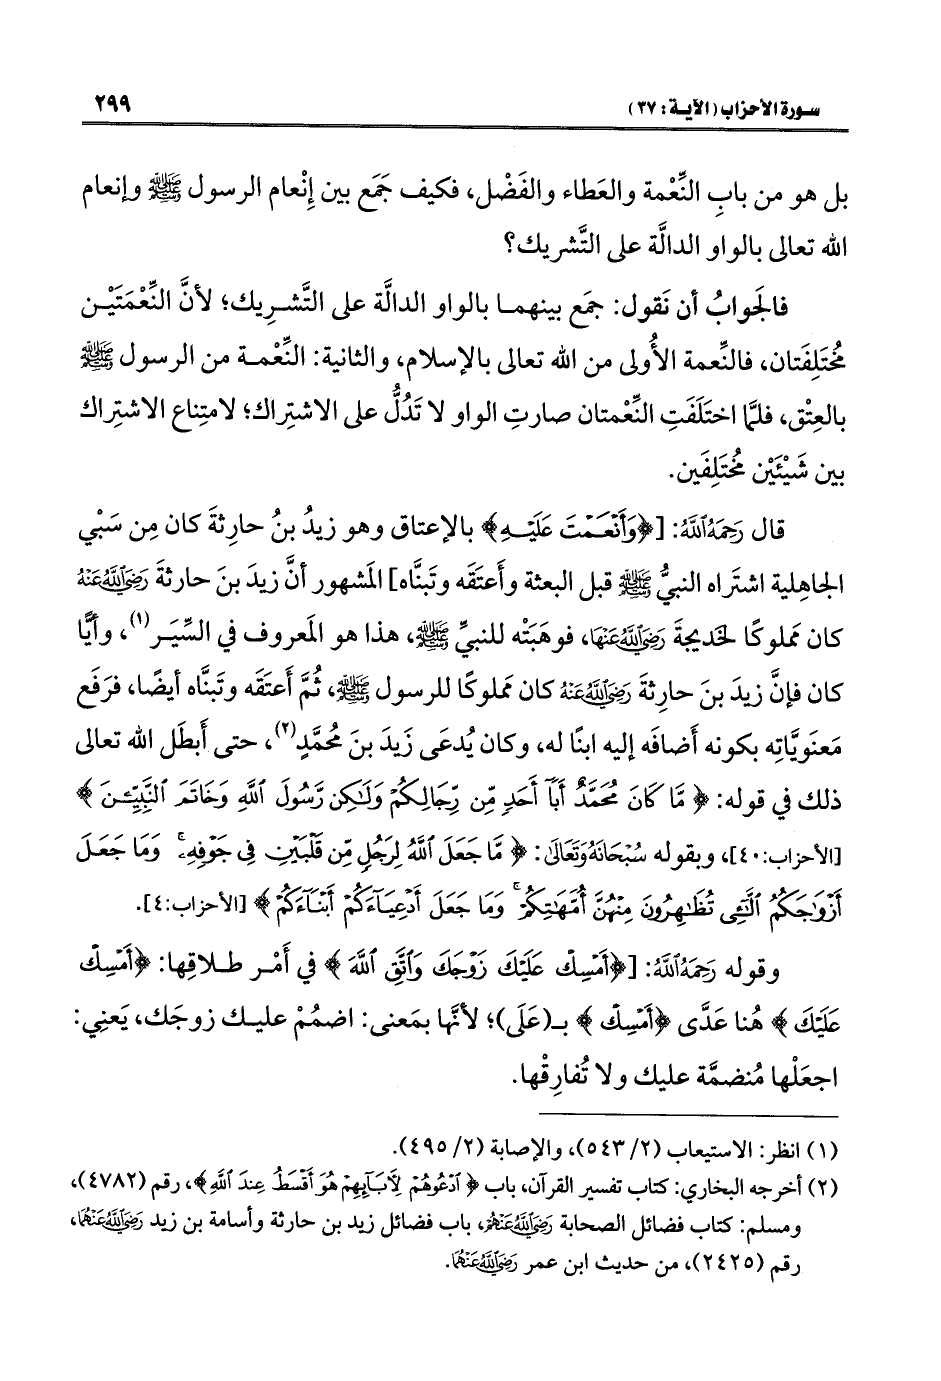 سورة الأحزاب (الآية: ٣٧) ٢٩٩
بل هو من بابِ النِّعْمة والعَطاء والفَضْل، فكيف جَمَع بين إنْعام الرسول ﷺ وإنعام
الله تعالى بالواو الدالَّة على التَّشريك؟
فالجَوابُ أن نَقول: جمَع بينهما بالواو الدالَّة على التَّشرِيك؛ لأنَّ النِّعْمَتَيْن
مُختَلِفَتان، فالنِّعمة الأُولى من الله تعالى بالإسلام، والثانية: النِّعْمة من الرسول ﷺ
بالعِتْق، فلمَّا اختَلَفَتِ النِّعْمتان صارتِ الواو لا تَدُلُّ على الاشتِراك؛ لامتِناع الاشتِراك
بين شَيْئَيْن مُختَلِفَين.
قال رَحِمَهُ ٱللَّهُ: [﴿وَأَنْعَمْتَ عَلَيْهِ﴾ بالإعتاق وهو زيدُ بنُ حارِثةَ كان مِن سَبْي
الجاهلية اشتَراه النبيُّ ﷺ قبل البعثة وأعتَقه وتبنَّاه] المَشهور أنَّ زيدَ بنَ حارثةَ رَضِيَ ٱللَّهُ عَنْهُ
كان مَملوكًا لخديجةَ رَضِيَ ٱللَّهُ عَنْهَا، فوهَبَتْه للنبيِّ ﷺ، هذا هو المَعروف في السِّيَر(١)، وأيًّا
كان فإنَّ زيدَ بنَ حارِثةَ رَضِيَ ٱللَّهُ عَنْهُ كان مَملوكًا للرسول ﷺ، ثُمَّ أَعتَقه وتبنَّاه أيضًا، فرَفَع
مَعنَويَّاتِه بكونه أضافَه إليه ابنًا له، وكان يُدعَى زَيدَ بنَ مُحمَّدٍ(٢)، حتى أَبطَل الله تعالى
ذلك في قوله: ﴿مَّا كَانَ مُحَمَّدٌ أَبَآ أَحَدٍ مِّن رِّجَالِكُمْ وَلَٰكِن رَّسُولَ ٱللَّهِ وَخَاتَمَ ٱلنَّبِيِّـۧنَ﴾
[الأحزاب:٤٠]، وبقوله سُبْحَانَهُ وَتَعَالَىٰ: ﴿مَّا جَعَلَ ٱللَّهُ لِرَجُلٍ مِّن قَلْبَيْنِ فِى جَوْفِهِۦ ۚ وَمَا جَعَلَ
أَزْوَٰجَكُمُ ٱلَّـٰٓـِٔى تُظَـٰهِرُونَ مِنْهُنَّ أُمَّهَـٰتِكُمْ ۚ وَمَا جَعَلَ أَدْعِيَآءَكُمْ أَبْنَآءَكُمْ﴾ [الأحزاب:٤].
وقوله رَحِمَهُ ٱللَّهُ: [﴿أَمْسِكْ عَلَيْكَ زَوْجَكَ وَٱتَّقِ ٱللَّهَ﴾ في أَمْر طلاقِها: ﴿أَمْسِكْ
عَلَيْكَ﴾ هُنا عَدَّى ﴿أَمْسِكْ﴾ بـ(عَلَى)؛ لأنَّها بمَعنى: اضمُمْ عليك زوجَك، يَعنِي:
اجعَلْها مُنضمَّة عليك ولا تُفارِقْها.
(١) انظر: الاستيعاب (٢/ ٥٤٣)، والإصابة (٢/ ٤٩٥).
(٢) أخرجه البخاري: كتاب تفسير القرآن، باب ﴿ٱدْعُوهُمْ لِأَبَآئِهِمْ هُوَ أَقْسَطُ عِندَ ٱللَّهِ﴾، رقم (٤٧٨٢)،
ومسلم: كتاب فضائل الصحابة رَضِيَ ٱللَّهُ عَنْهُمْ، باب فضائل زيد بن حارثة وأسامة بن زيد رَضِيَ ٱللَّهُ عَنْهُمَا،
رقم (٢٤٢٥)، من حديث ابن عمر رَضِيَ ٱللَّهُ عَنْهُمَا.